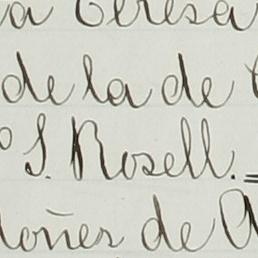 a Teresa
de la de
S. Rosell.=
doñes de